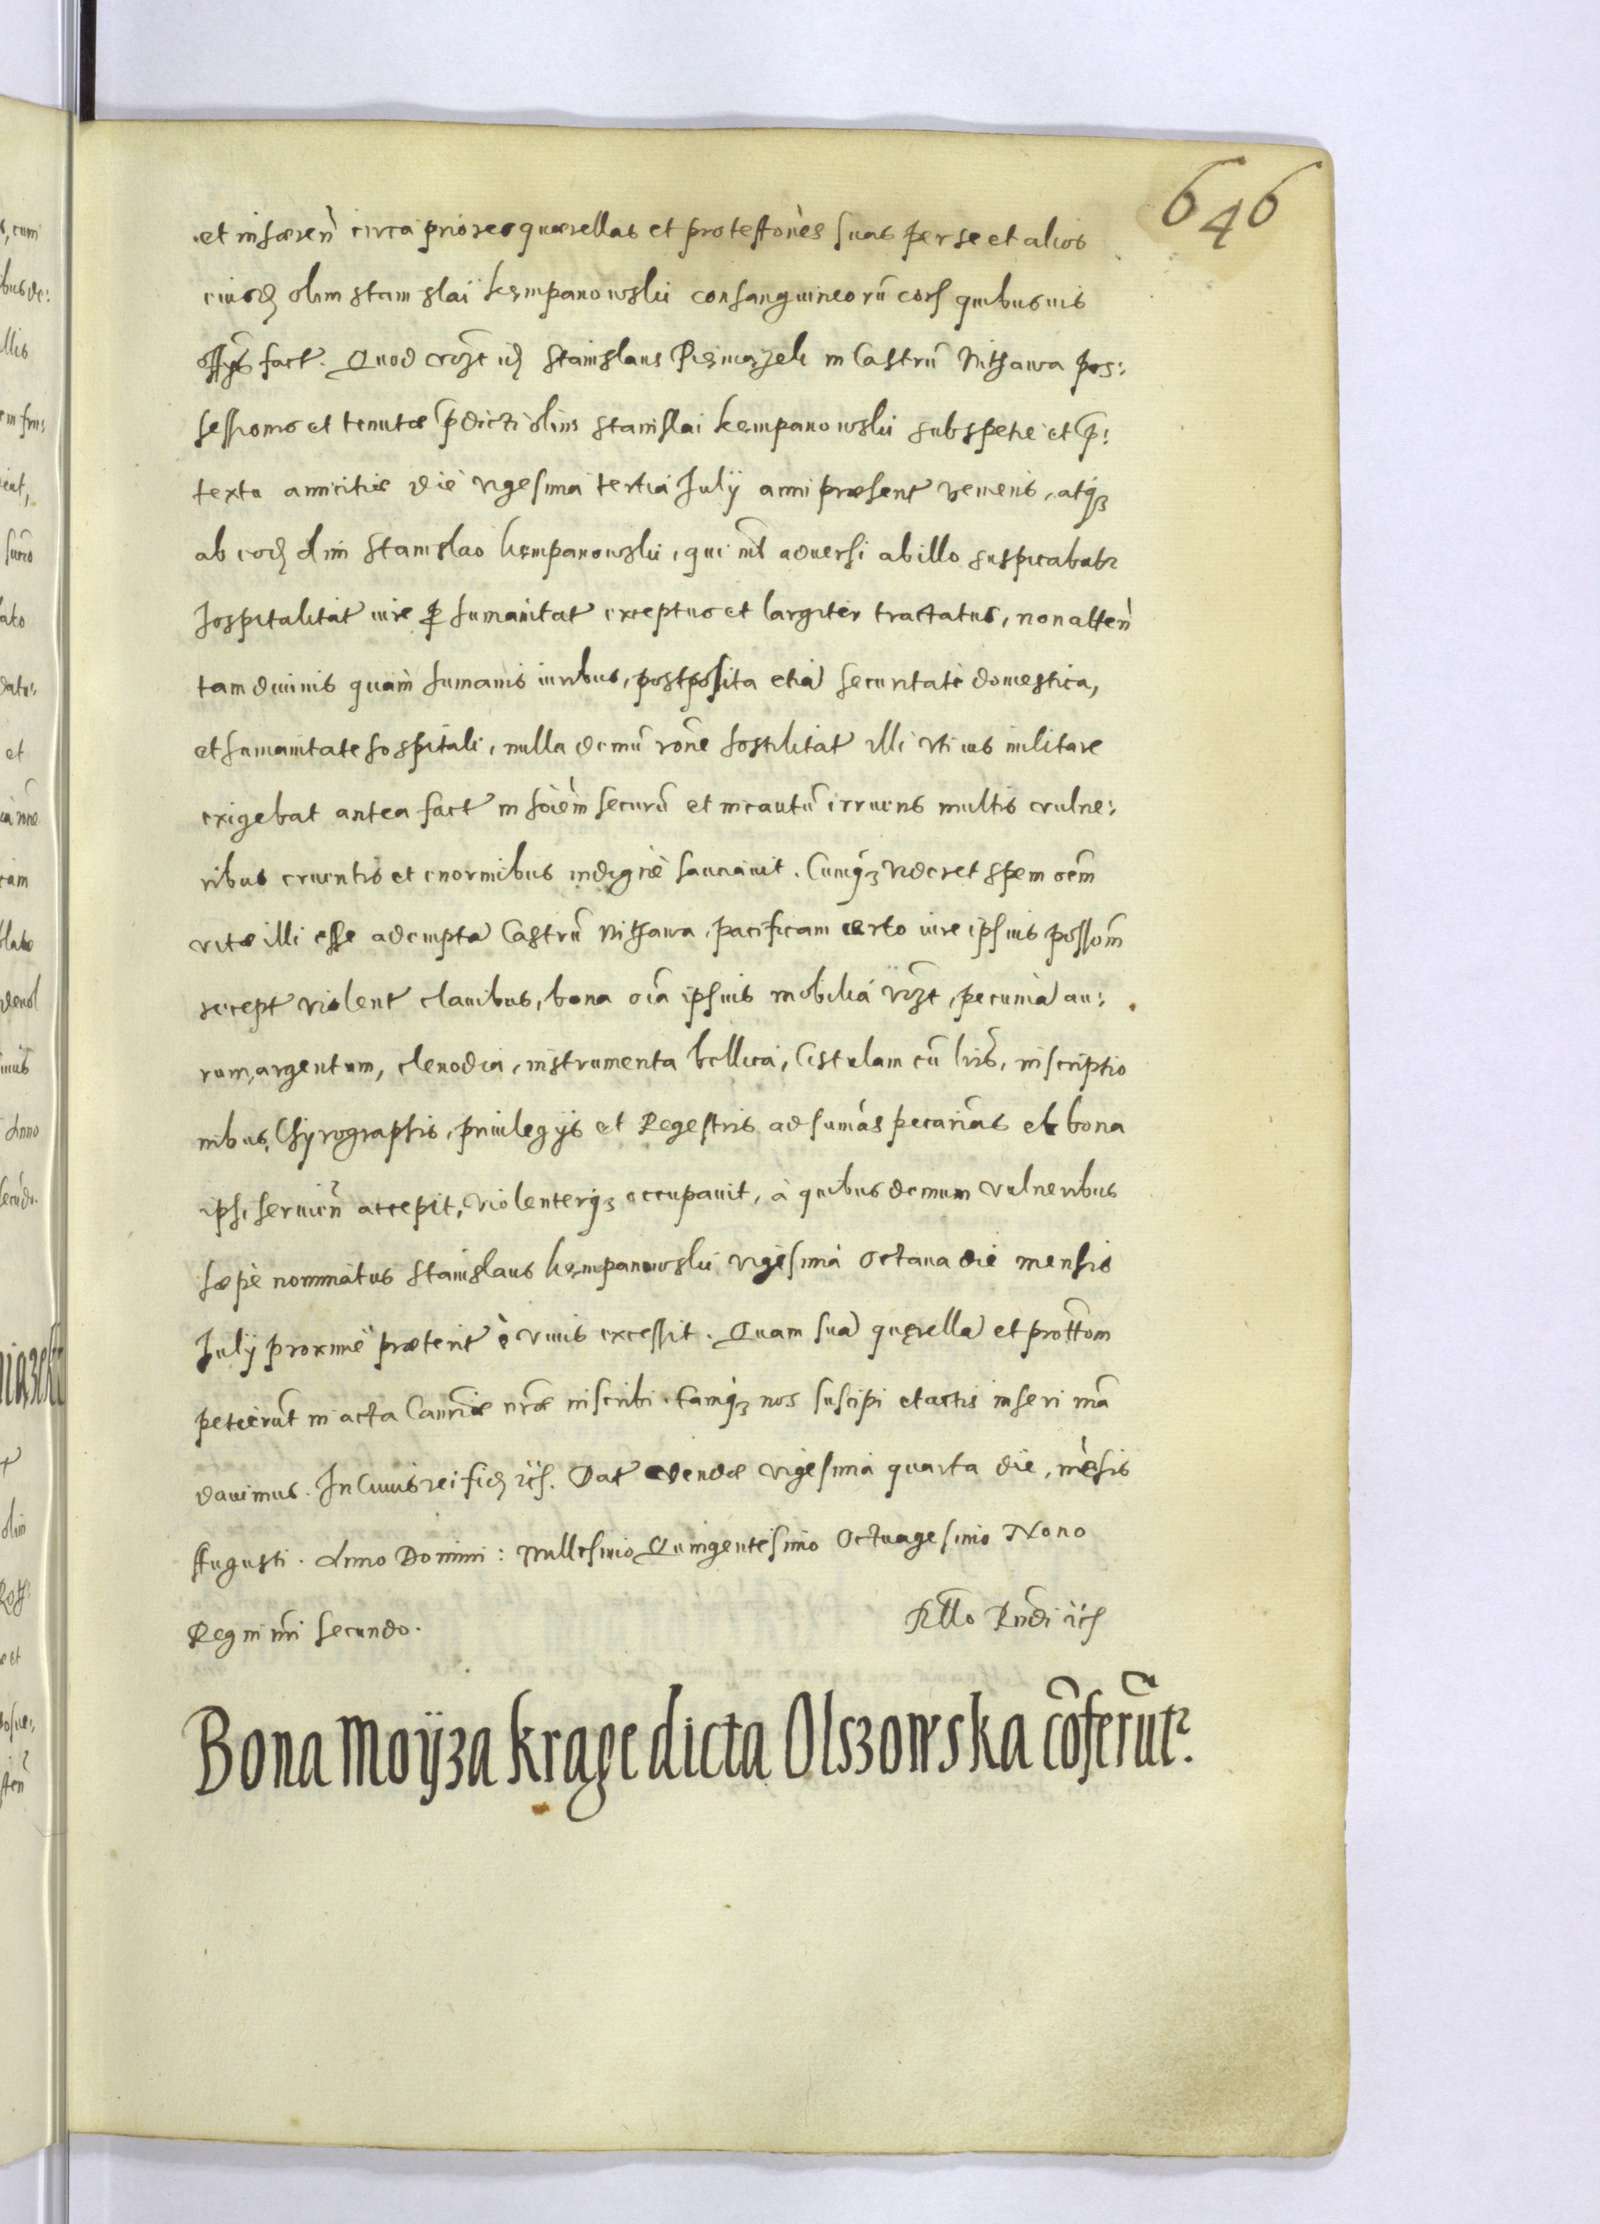 646
et inhæren̄ circa priores quærellas et protestōnes suas per se et alios
eiusd olim Stanislai Kęmpanowski consanguineorū cor quibusuis
offys fact. Quod vrzt id Stanislaus in Castrū Nithawa pos:
sessionis et tenutæ p̄dicti olim Stanislai Kęmpanowski sub spetie et p̄:
textu amicitiæ die vigesima tertia July anni præsent veniens, atq3
ab eod olim Stanislao Kęmpanowski, qui nīl aduersi ab illo suspicabatr
hospitalitat iure ꝓ humanitat exceptus et largiter tractatus, non atten̄
tam diuinis quàm humanis iuribus, postposita etiā securitate domestica,
et humanitate hospitali, nulla demū rōne hostilitat illi vti ius militare
exigebat antea fact in hōiem securū et incautū irruens multis vulne:
ribus cruentis et enormibus indignè sauciauit. Cumq3 videret spem oēm
vitæ illi esse ademptā Castrū Nithawa, pacificam certo iure ipsius possōm
recept violent clauibus, bona oīa ipsius mobilia vrzt, pecuniā au:
rum, argentum, clenodia, instrumenta bellica, Cistulam cū lrīs, inscriptio
nibus, Chyrographis, priuilegys et Regestris ad sumās pecuniar̄ias et bona
ipsi seruien̄ accepit, violenterq3 occupauit, à quibus demum vulneribus
sæpè nominatus Stanislaus Kęmpanowski vigesima octaua die mensis
July proximè præterit è viuis excessit. Quam suā quęrellā et prottōm
petierūt in acta Cancr̄iæ nr̄æ inscribi. Eamq3 nos suscipi et actis inseri mā
dauimus. In Cuius rei fid etc. Dat Vendæ vigesima quarta die, mēsis
Augusti. Anno Domini: Millesimo Quingentesimo Octuagesimo Nono
Regni nr̄i secundo.
Rllo Rndi etc
Bona Moyza Krage dicta Olszowska cōferūtr.